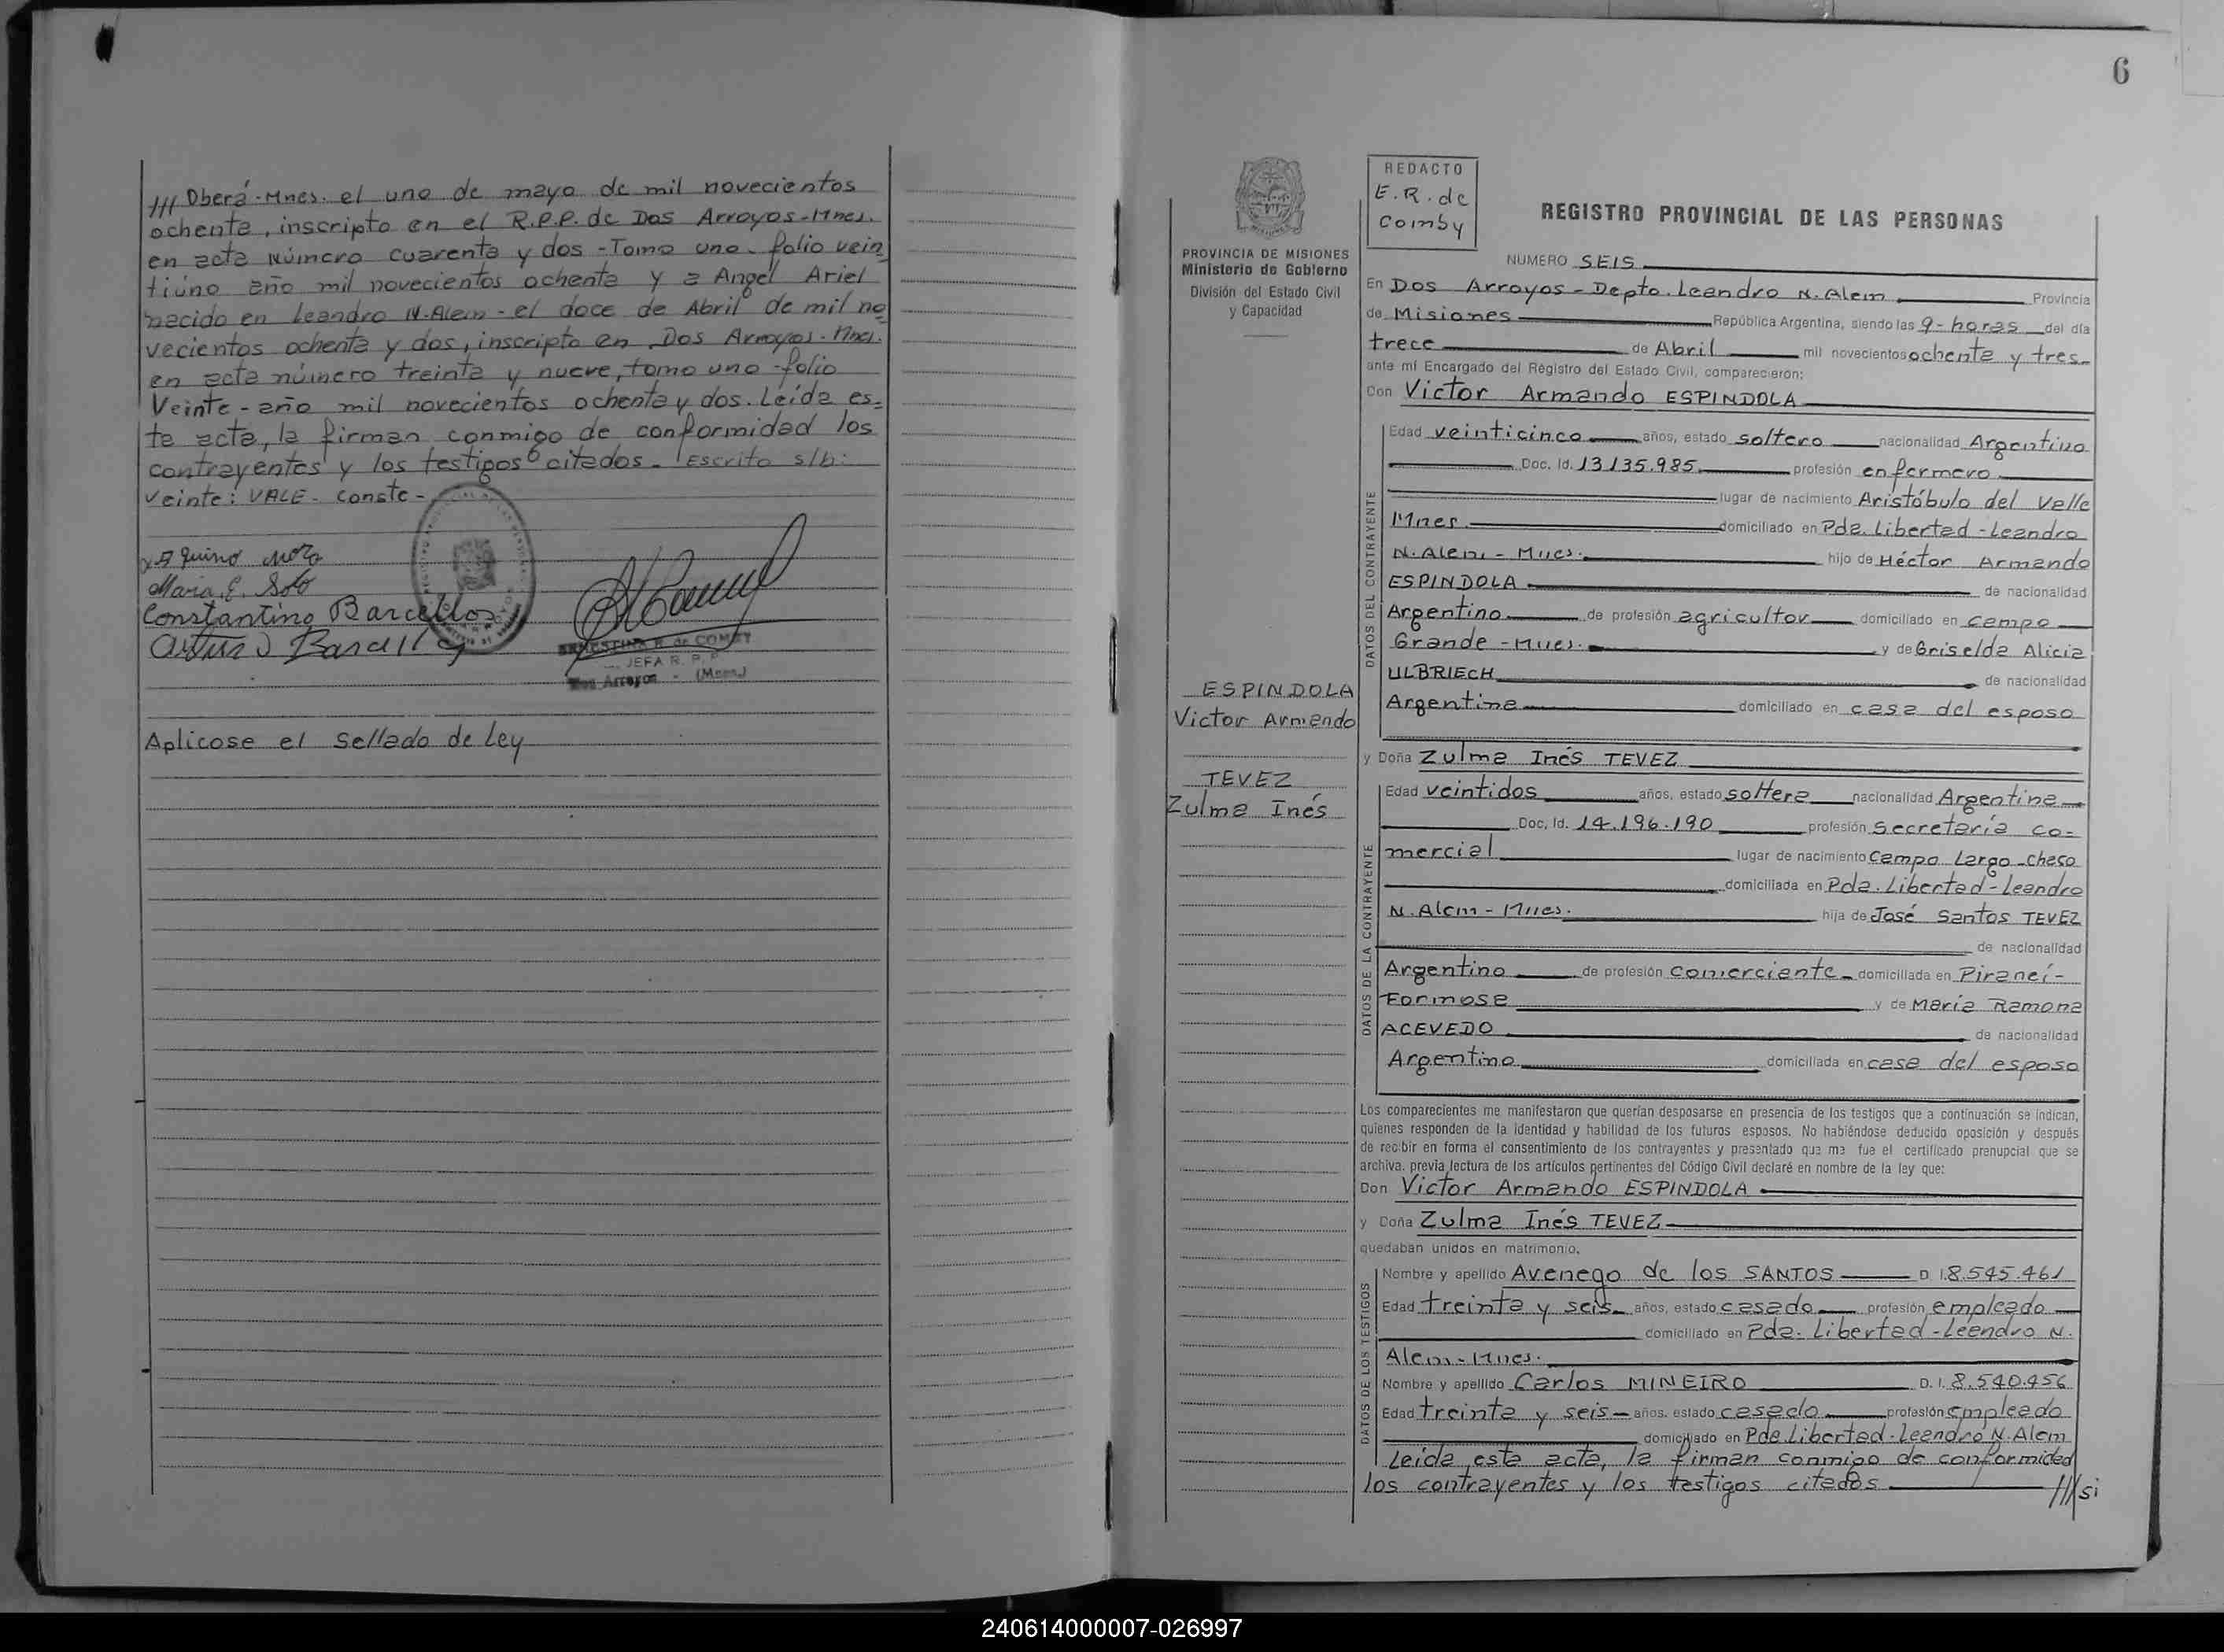 /// Oberá-Mnes. el uno de mayo de mil novecientos
ochenta, inscripto en el R.P.P. de Dos Arroyos-Mnes.
en acta número cuarenta y dos - Tomo uno - folio vein
tiuno año mil novecientos ochenta y a Angel Ariel
nacido en Leandro N. Alem - el doce de Abril de mil no
vecientos ochenta y dos, inscripto en Dos Arroyos - Mnes.
en acta número treinta y nueve, tomo uno - folio
Veinte - año mil novecientos ochenta y dos. Leída es=
te acta, la firman conmigo de conformidad los
contrayentes y los testigos citados. Escrito s/b:
veinte: VALE - Conste -
Maria E. Soto
Constantino Barcellos
ERNESTINA R. de COMBY
JEFA R. P. P.
Dos Arroyos - (Mnes.)
Aplicose el Sellado de Ley
6
PROVINCIA DE MISIONES
Ministerio de Gobierno
División del Estado Civil
y Capacidad
REDACTO
E.R. de
Comby
REGISTRO PROVINCIAL DE LAS PERSONAS
NUMERO SEIS
En Dos Arroyos - Depto. Leandro N. Alem Provincia
de Misiones República Argentina, siendo las 9- horas del día
trece de Abril mil novecientos ochenta y tres
ante mí Encargado del Registro del Estado Civil, comparecieron:
Don Victor Armando ESPINDOLA
DATOS DEL CONTRAYENTE
Edad veinticinco años, estado soltero nacionalidad Argentino
Doc. Id. 13135.985 profesión enfermero
lugar de nacimiento Aristóbulo del Valle
Mnes domiciliado en Pda. Libertad - Leandro
N. Alem - Mnes. hijo de Héctor Armando
ESPINDOLA de nacionalidad
Argentino de profesión agricultor domiciliado en Campo
Grande - Mnes. y de Griselda Alicia
ULBRIECH de nacionalidad
Argentina domiciliado en casa del esposo
ESPINDOLA
Victor Armando
TEVEZ
Zulma Inés
y Doña Zulma Inés TEVEZ
DATOS DE LA CONTRAYENTE
Edad veintidos años, estado soltera nacionalidad Argentina
Doc. Id. 14.196.190 profesión Secretaría co-
mercial lugar de nacimiento Campo Largo - Chaco
domiciliada en Pda. Libertad - Leandro
N. Alem - Mnes. hija de José Santos TEVEZ
de nacionalidad
Argentino de profesión comerciante domiciliada en Piraneí -
Formosa y de María Ramona
ACEVEDO de nacionalidad
Argentino domiciliada en casa del esposo
Los comparecientes me manifestaron que querían desposarse en presencia de los testigos que a continuación se indican,
quienes responden de la identidad y habilidad de los futuros esposos. No habiéndose deducido oposición y después
de recibir en forma el consentimiento de los contrayentes y presentado que me fue el certificado prenupcial que se
archiva, previa lectura de los artículos pertinentes del Código Civil declaré en nombre de la ley que:
Don Victor Armando ESPINDOLA
y Doña Zulma Inés TEVEZ
quedaban unidos en matrimonio.
DATOS DE LOS TESTIGOS
Nombre y apellido Avenego de los SANTOS D. I. 8.545.461
Edad treinta y seis años, estado casado profesión empleado
domiciliado en Pda. Libertad - Leandro N.
Alem - Mnes.
Nombre y apellido Carlos MINEIRO D. I. 8.540.456
Edad treinta y seis años, estado casado profesión empleado
domiciliado en Pda. Libertad - Leandro N. Alem
Leída esta acta, la firman conmigo de conformidad
los contrayentes y los testigos citados ///si
240614000007-026997